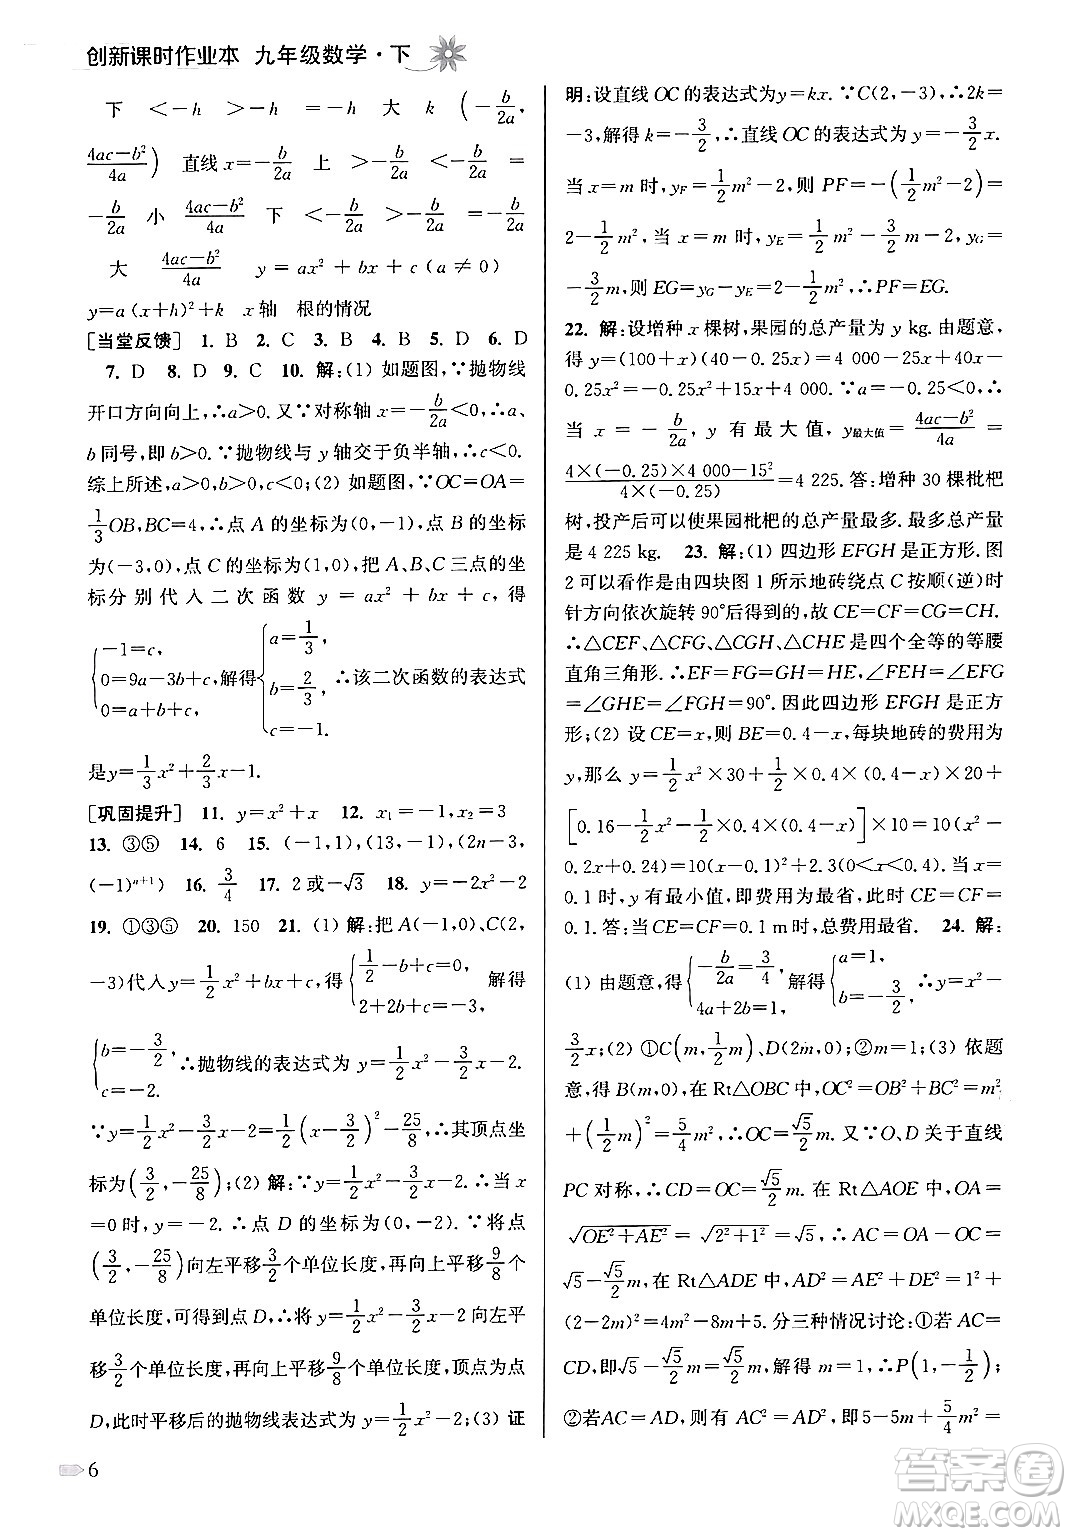 创新课时作业本 九年级数学·下
下 <-h >-h =-h 大 k (-b/2a,
(4ac-b²)/4a) 直线x=-b/2a 上 >-b/2a <-b/2a =
-b/2a 小 (4ac-b²)/4a 下 <-b/2a >-b/2a =-b/2a
大 (4ac-b²)/4a y=ax²+bx+c(a≠0)
y=a(x+h)²+k x轴 根的情况
[当堂反馈] 1. B 2. C 3. B 4. B 5. D 6. D
7. D 8. D 9. C 10. 解:(1) 如题图,∵抛物线
开口方向向上,∴a>0.又∵对称轴x=-b/2a<0,∴a、
b同号,即b>0.∵抛物线与y轴交于负半轴,∴c<0.
综上所述,a>0,b>0,c<0;(2) 如题图,∵OC=OA=
1/3OB,BC=4,∴点A的坐标为(0,-1),点B的坐标
为(-3,0),点C的坐标为(1,0),把A、B、C三点的坐
标分别代入二次函数y=ax²+bx+c,得
{-1=c, 0=9a-3b+c, 0=a+b+c, 解得{a=1/3, b=2/3, c=-1. ∴该二次函数的表达式
是y=1/3x²+2/3x-1.
[巩固提升] 11. y=x²+x 12. x₁=-1,x₂=3
13. ③⑤ 14. 6 15. (-1,1),(13,-1),(2n-3,
(-1)ⁿ⁺¹) 16. 3/4 17. 2或-√3 18. y=-2x²-2
19. ①③⑤ 20. 150 21. (1) 解:把A(-1,0)、C(2,
-3)代入y=1/2x²+bx+c,得{1/2-b+c=0, 2+2b+c=-3, 解得
{b=-3/2, c=-2. ∴抛物线的表达式为y=1/2x²-3/2x-2.
∵y=1/2x²-3/2x-2=1/2(x-3/2)²-25/8,∴其顶点坐
标为(3/2,-25/8);(2) 解:∵y=1/2x²-3/2x-2.当x
=0时,y=-2.∴点D的坐标为(0,-2).∵将点
(3/2,-25/8)向左平移3/2个单位长度,再向上平移9/8个
单位长度,可得到点D,∴将y=1/2x²-3/2x-2向左平
移3/2个单位长度,再向上平移9/8个单位长度,顶点为点
D,此时平移后的抛物线表达式为y=1/2x²-2;(3) 证
明:设直线OC的表达式为y=kx.∵C(2,-3),∴2k=
-3,解得k=-3/2,∴直线OC的表达式为y=-3/2x.
当x=m时,y_F=1/2m²-2,则PF=-(1/2m²-2)=
2-1/2m²,当x=m时,y_E=1/2m²-3/2m-2,y_G=
-3/2m,则EG=y_G-y_E=2-1/2m²,∴PF=EG.
22. 解:设增种x棵树,果园的总产量为y kg.由题意,
得y=(100+x)(40-0.25x)=4 000-25x+40x-
0.25x²=-0.25x²+15x+4 000.∵a=-0.25<0,∴
当x=-b/2a,y有最大值,y最大值=(4ac-b²)/4a=
(4×(-0.25)×4 000-15²)/(4×(-0.25))=4 225.答:增种30棵枇杷
树,投产后可以使果园枇杷的总产量最多.最多总产量
是4 225 kg. 23. 解:(1) 四边形EFGH是正方形.图
2可以看作是由四块图1所示地砖绕点C按顺(逆)时
针方向依次旋转90°后得到的,故CE=CF=CG=CH.
∴△CEF、△CFG、△CGH、△CHE是四个全等的等腰
直角三角形.∴EF=FG=GH=HE,∠FEH=∠EFG
=∠GHE=∠FGH=90°.因此四边形EFGH是正方
形;(2) 设CE=x,则BE=0.4-x,每块地砖的费用为
y,那么y=1/2x²×30+1/2×0.4×(0.4-x)×20+
[0.16-1/2x²-1/2×0.4×(0.4-x)]×10=10(x²-
0.2x+0.24)=10(x-0.1)²+2.3(0<x<0.4).当x=
0.1时,y有最小值,即费用为最省,此时CE=CF=
0.1.答:当CE=CF=0.1 m时,总费用最省. 24. 解:
(1) 由题意,得{-b/2a=3/4, 4a+2b=1, 解得{a=1, b=-3/2, ∴y=x²-
3/2x;(2) ①C(m,1/2m)、D(2m,0);②m=1;(3) 依题
意,得B(m,0),在Rt△OBC中,OC²=OB²+BC²=m²
+(1/2m)²=5/4m²,∴OC=√5/2m.又∵O、D关于直线
PC对称,∴CD=OC=√5/2m.在Rt△AOE中,OA=
√(OE²+AE²)=√(2²+1²)=√5,∴AC=OA-OC=
√5-√5/2m,在Rt△ADE中,AD²=AE²+DE²=1²+
(2-2m)²=4m²-8m+5.分三种情况讨论:①若AC=
CD,即√5-√5/2m=√5/2m,解得m=1,∴P(1,-1/2);
②若AC=AD,则有AC²=AD²,即5-5m+5/4m²=
6
答案圈
MXQE.COM